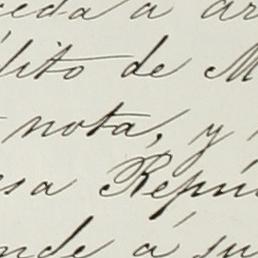 ceda á ar
dito de M
nota, y
esa Repú
ende á su